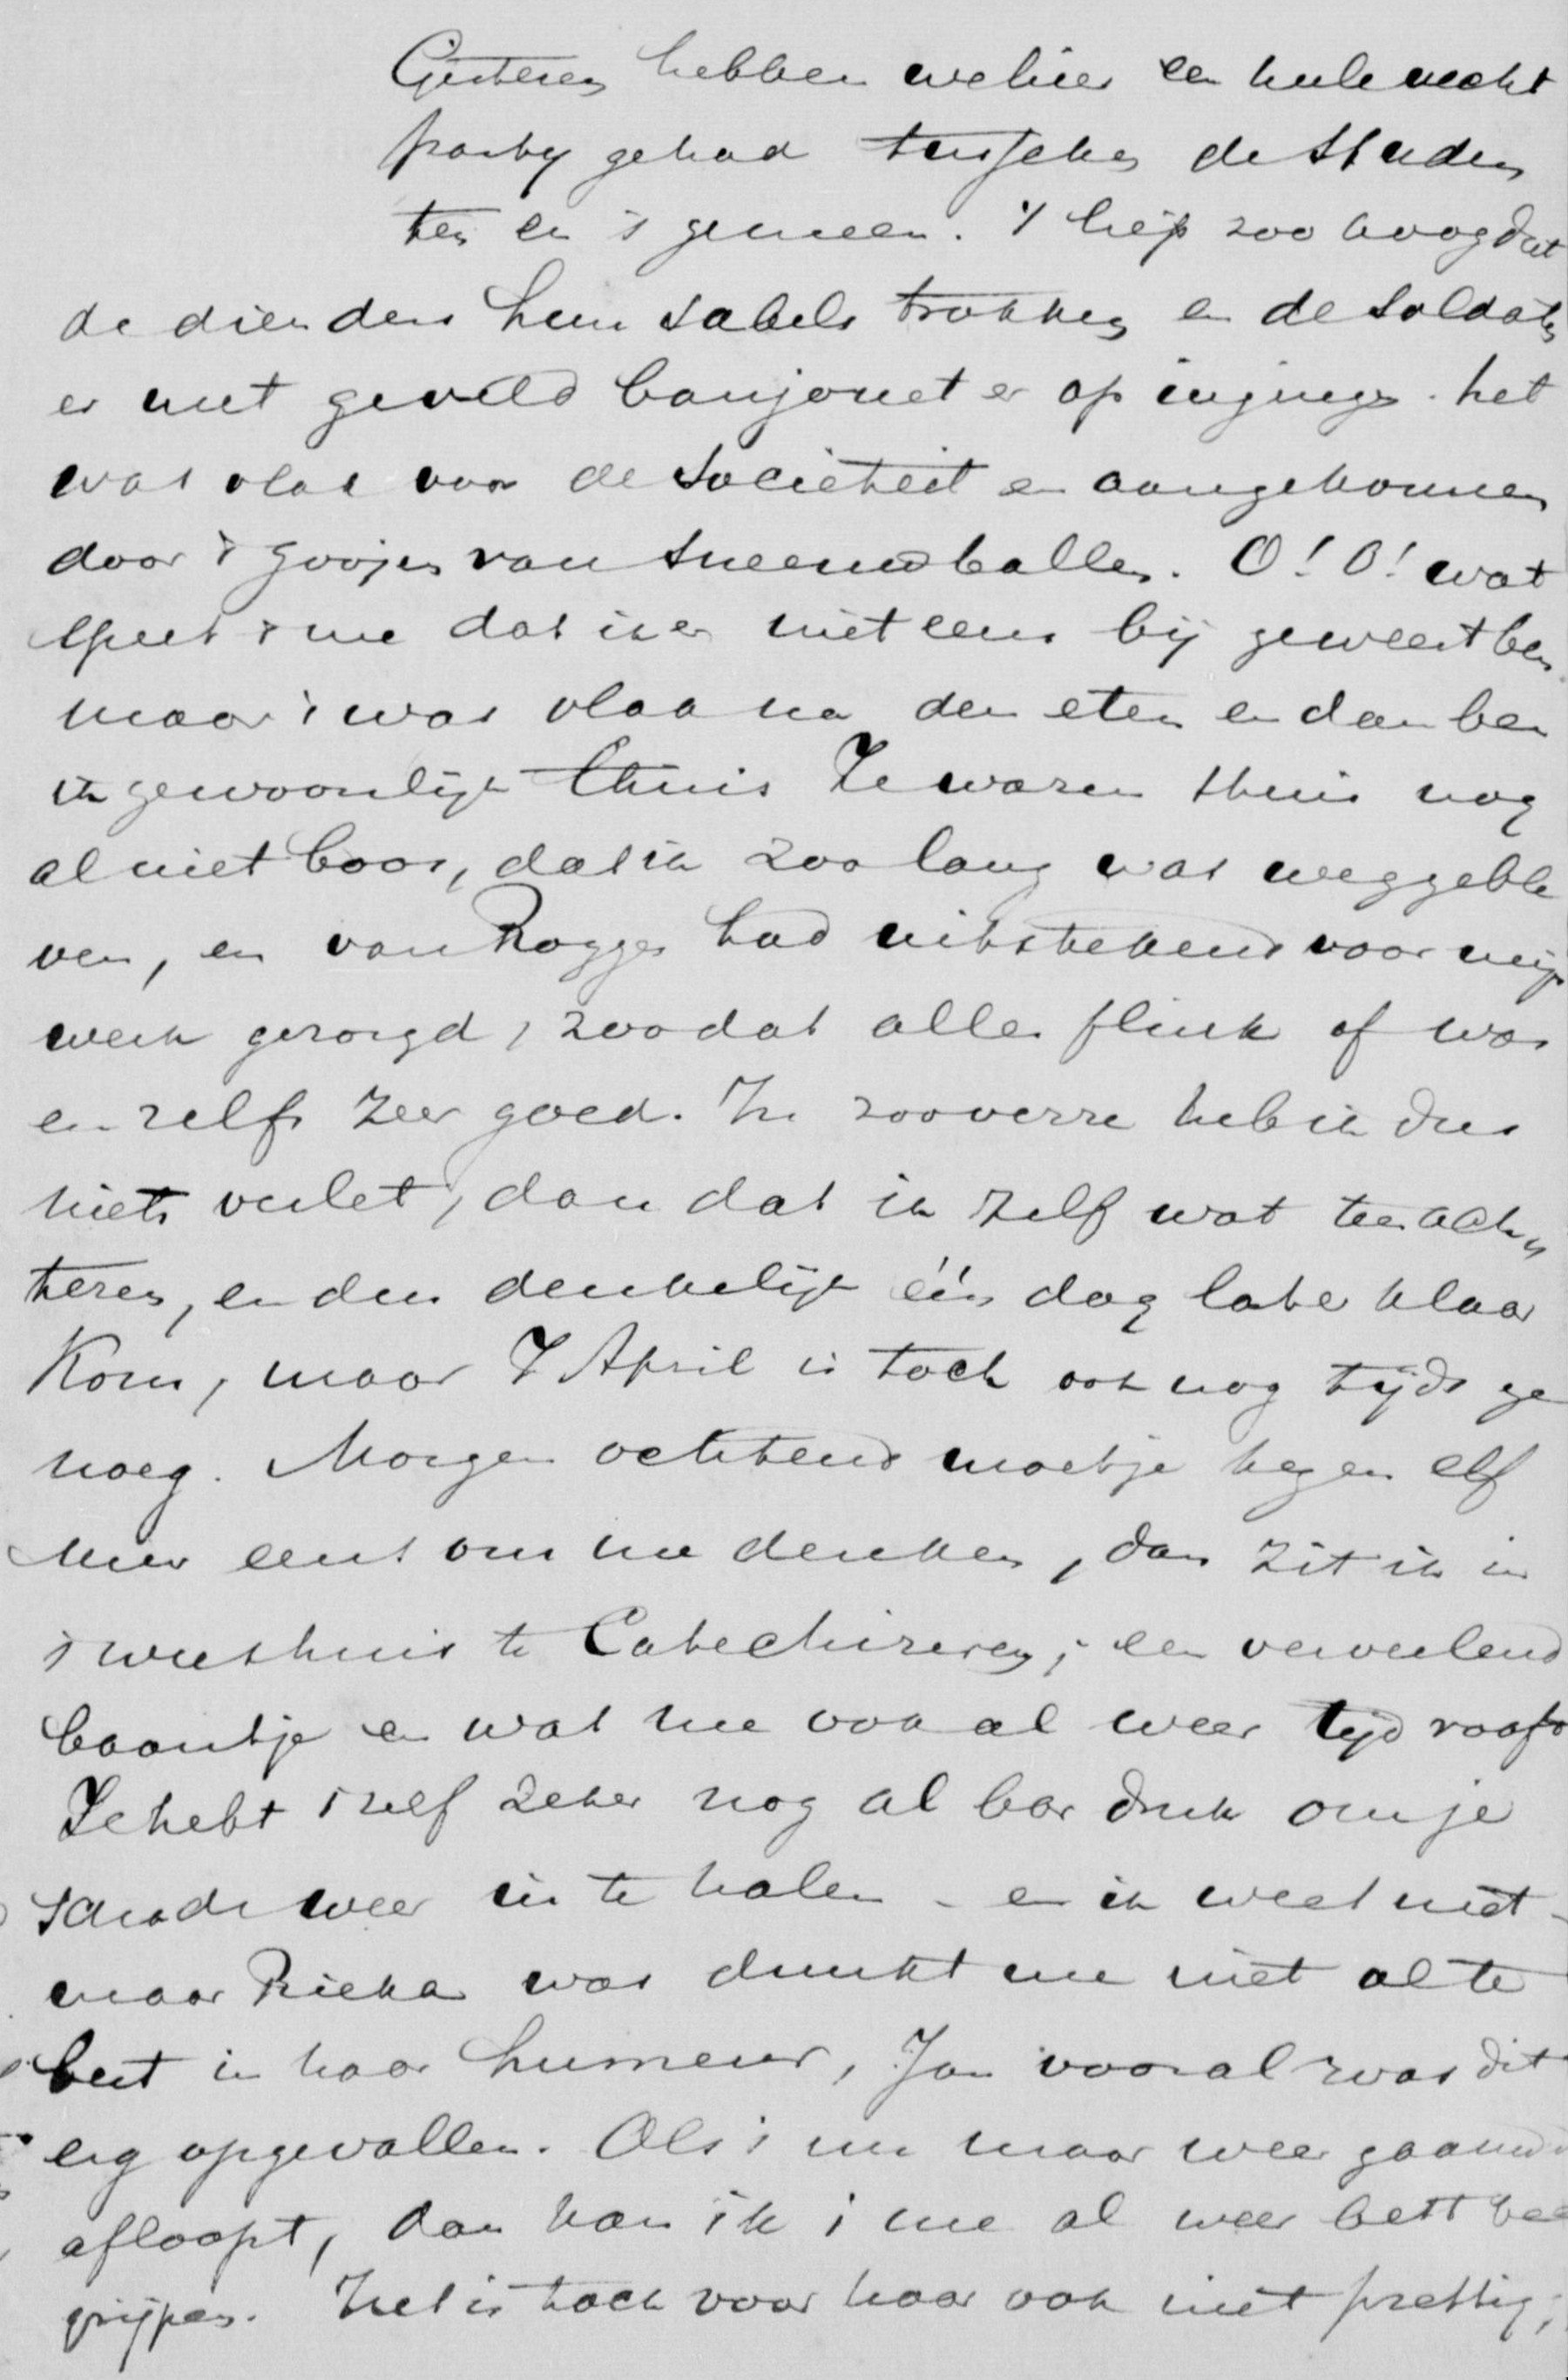 Gisteren hebben we hier een heele vecht
party gehad tusschen de studen
ten en 't gemeen. 't liep zoo hoog dat
de dienders hun sabels trokken en de soldaten
er met geveld banjonet er op ingingen. het
was vlak voor de Societeit en aangekomen
door 't gooijen van sneeuwballen. O! O! wat
speet 't me dat ik er niet eens bij geweest ben
maar 't was vlak na den eten en dan ben
ik gewoonlijk thuis Ze waren thuis nog
al niet boos, dat ik zoo lang was weggeble
ven, en van Rogge had uitstekend voor mijn
werk gezorgd, zoodat alles flink af was
en zelfs zeer goed. In zooverre heb ik dus
niets verlet, dan dat ik zelf wat ten ach„
teren, en dus denkelijk één dag later klaar
kom, maar 7 April is toch ook nog tijds ge
noeg. Morgen ochtend moet je tegen elf
uur eens om me denken, dan zit ik in
't weeshuis te Catechiseren; een vervelend
baantje en wat me ook al weer tijd rooft
Je hebt 't zelf zeker nog al bar druk om je
schade weer in te halen – en ik weet niet –
maar Rieka was dunkt me niet al te
best in haar humeur, Jan vooral was dit
erg opgevallen. Als 't nu maar weer gaande
afloopt, dan kan ik 't me al weer best be
grijpen. Het is toch voor haar ook niet prettig;